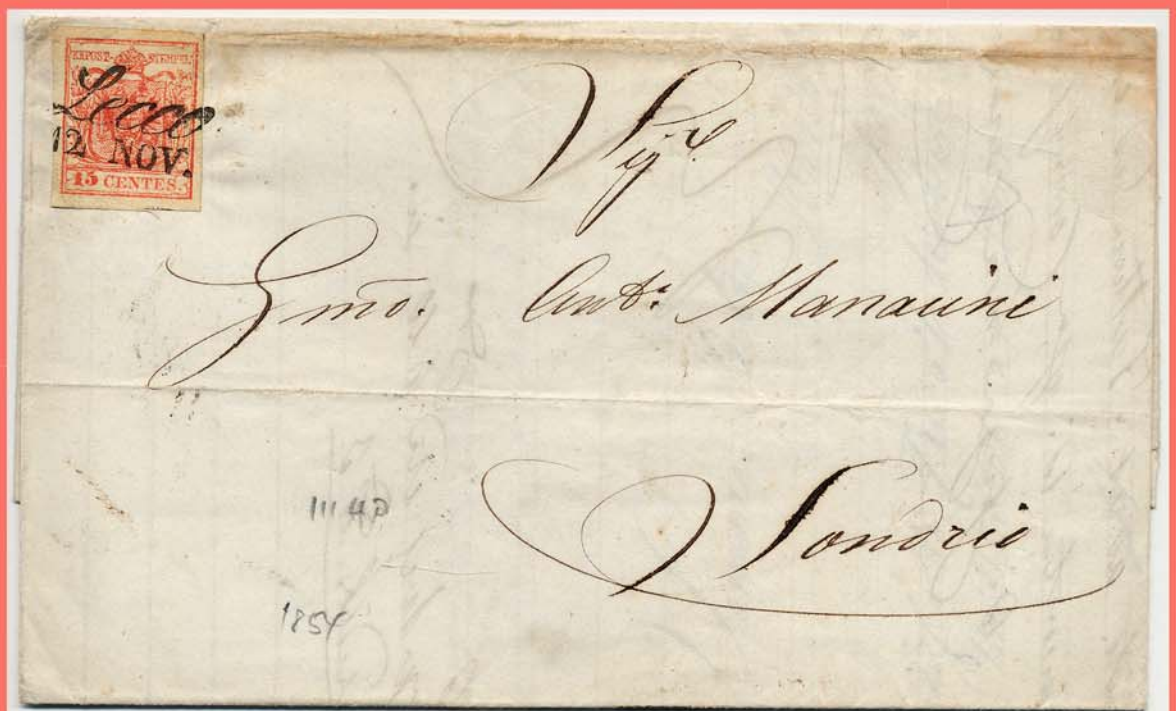 KKPOST-STEMPEL
Lecco
12 NOV.
15 CENTES.
Sig.re
Gmo. Ant.o Manacini
Sondrio
III HP
1854